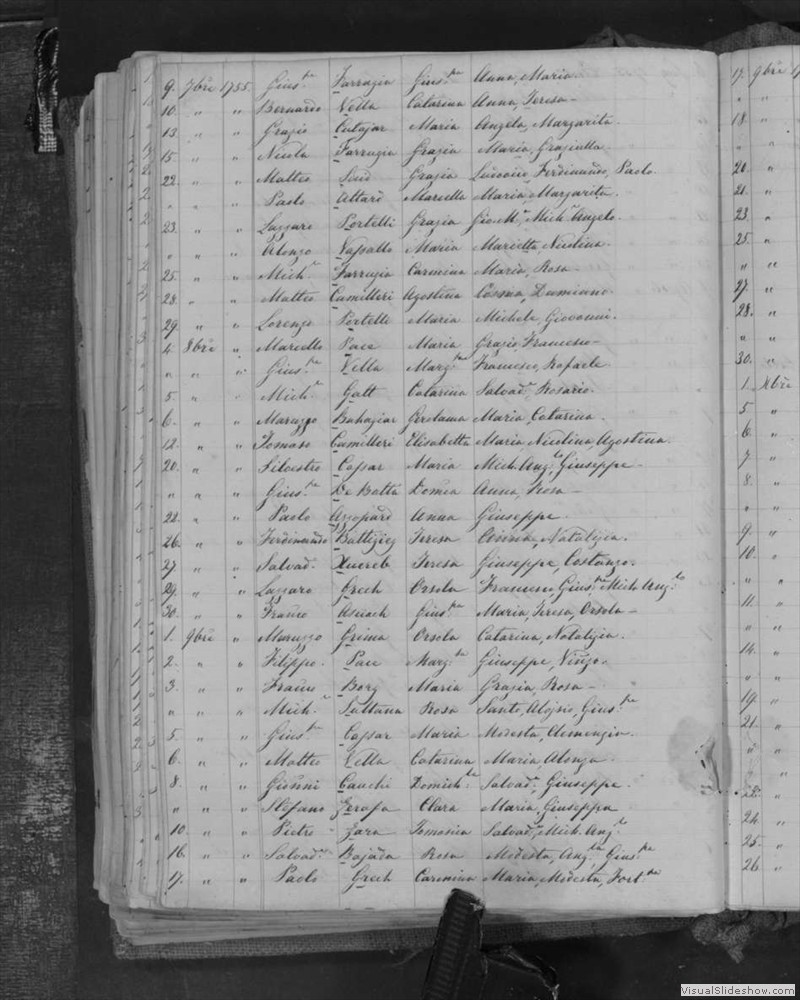 9. 7bre 1755. Gius.pe Farrugia Gius.pa Anna, Maria
10. " " Bernardo Vella Catarina Anna, Teresa -
13. " " Grazio Cutajar Maria Angela, Margarita.
15. " " Nicola Farrugia Grazia Maria, Graziulla
22. " " Matteo Said Grazia Ferdinando, Paolo.
" " Paolo Attard Marcella Maria, Margarita.
23. " " Lazzaro Portelli Grazia Gio. M.a Mich.Angelo.
" " Alonzo Vassallo Maria Marietta, Niculina.
25. " " Mich.e Farrugia Carmina Maria, Rosa -
28. " " Matteo Camilleri Agostina Cosma, Damiano.
29. " " Lorenzo Portelli Maria Michele, Giovanni.
4. 8bre " Marcello Pace Maria Grazio, Francesco -
" " " Gius.pe Vella Marg.ta Francesco, Rafaele
5. " " Mich.e Gatt Catarina Salvad.e, Rosario.
6. " " Maruzzo Buhagiar Gerolama Maria, Catarina.
12. " " Tomaso Camilleri Elisabetta Maria, Niculina, Agostina.
20. " " Silvestro Cassar Maria Mich.Ang.lo, Giuseppe -
" " " Gius.pe De Batta Domca Anna, Rosa -
22. " " Paolo Azzopard Anna Giuseppe.
26. " " Ferdinando Battigieg Teresa Natalizia.
27. " " Salvad. Xuereb Teresa Giuseppe, Costanzo.
29. " " Lazzaro Grech Orsola Francesco, Gius.pe, Mich. Ang.lo
30. " " Franco Asciach Gius.pa Maria, Teresa, Orsola -
1. 9bre " Maruzzo Grima Orsola Catarina, Natalizia.
2. " " Filippo. Pace Marg.ta Giuseppe,
3. " " Franco Borg Maria Grazia, Rosa -
" " " Mich.e Sultana Rosa Santo, Aloysio, Gius.pe
5. " " Gius.pe Cassar Maria Modesta, Clemenzia.
6. " " Matteo Vella Catarina Maria Alonza.
8. " " Gionni Cauchi Domich.la Salvad.e, Giuseppe.
" " " Stefano Zerafa Clara Maria, Giuseppa
10. " " Pietro - Zara Tomasia Salvad.e, Mich. Ang.lo
16. " " Salvad.e Bajada Rosa Modesta, Ang.la, Gius.pa
17. " " Paolo Grech Carmina Maria, Modesta, Fort.ta
17. 9bre 17
" "
18. "
" "
20. "
21. "
23. "
25. "
" "
27. "
28. "
" "
30. "
1. Xbre
5 "
6. "
7 "
8. "
" "
9. "
10. "
" "
11. "
" "
14. "
" "
19. "
21. "
" "
" "
22. "
24. "
25. "
26. "
VisualSlideshow.com